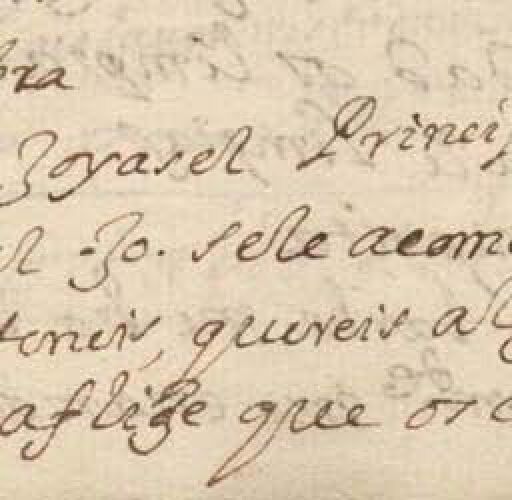 bra
Zoyasel Princip
el Zo. sele acom
teneis, quereis al
aflige que os